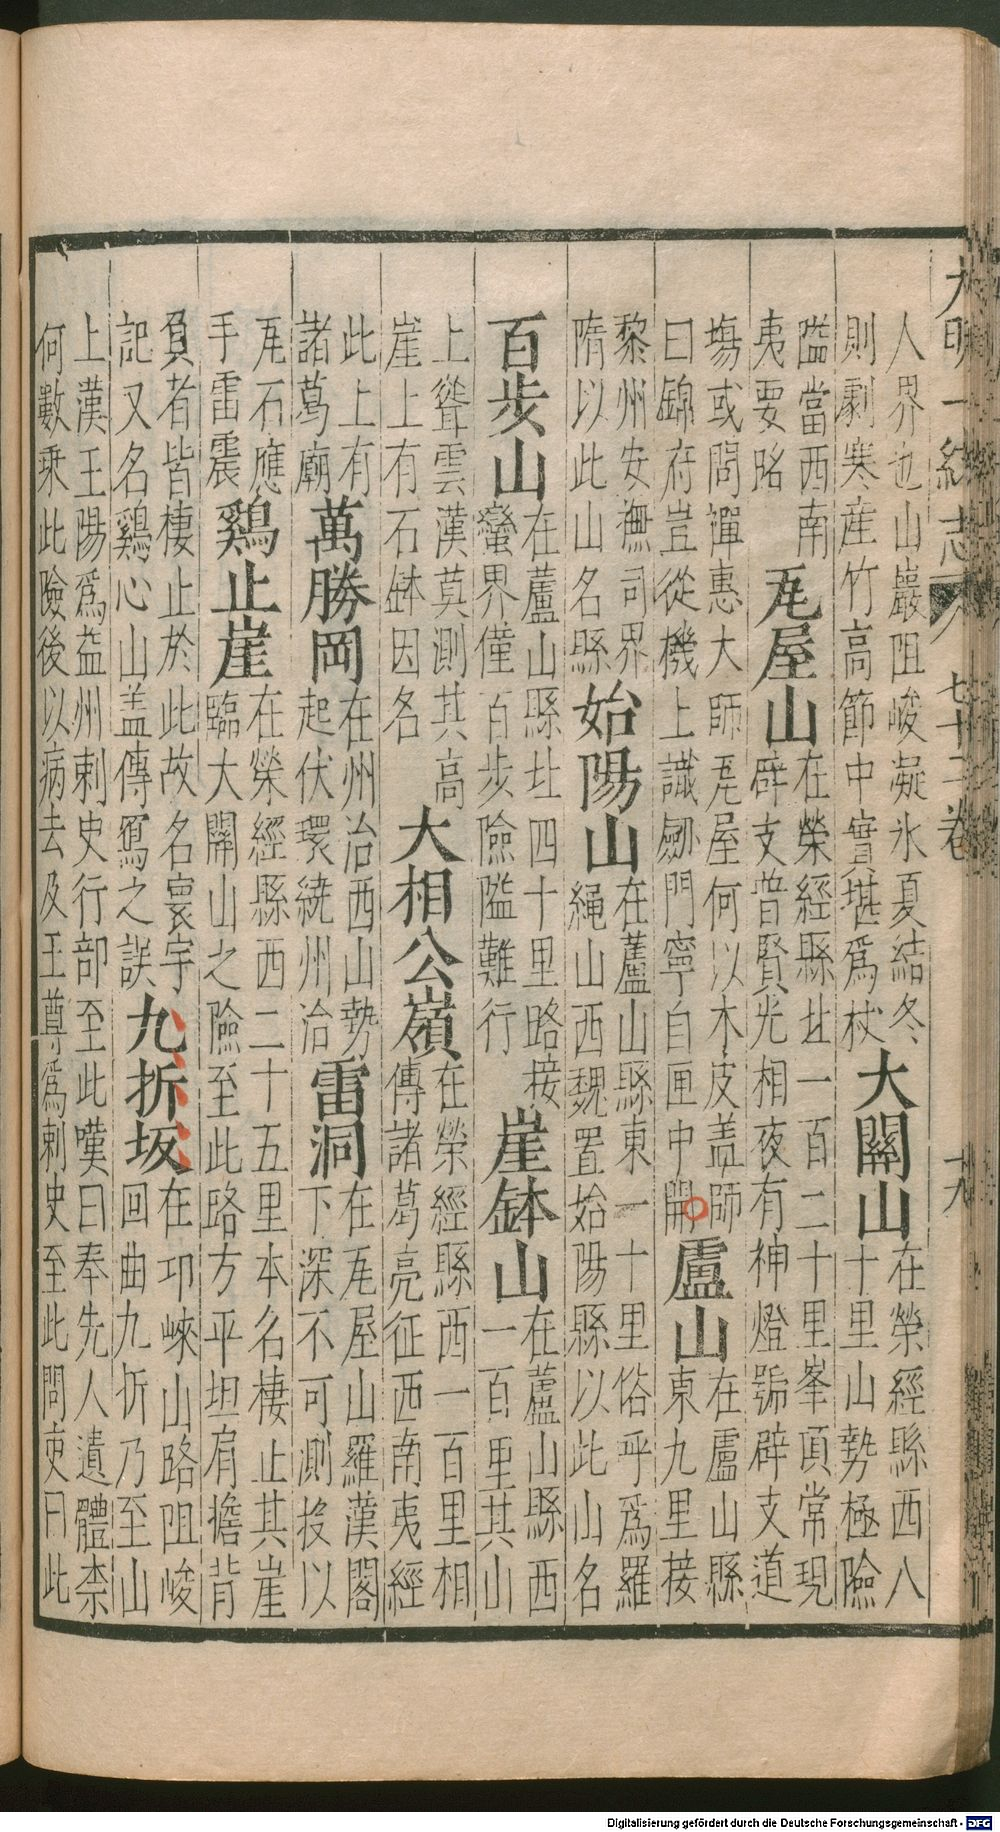 大明一統志 七十二卷 十九
人界也山巖阻峻凝氷夏結冬
則劇寒産竹高節中實堪爲杖
大關山
在榮經縣西八
十里山勢極險
隘當西南
夷要路
瓦屋山
在榮經縣北一百二十里峯頂常現
辟支昔賢光相夜有神燈號辟支道
塲或問禪惠大師瓦屋何以木皮盖師
曰錦府豈從機上識劒門寧自匣中開
盧山
在盧山縣
東九里接
黎州安撫司界
隋以此山名縣
始陽山
在蘆山縣東一十里俗乎爲羅
繩山西魏置始陽縣以此山名
百步山
在蘆山縣北四十里路接
蠻界僅百步險隘難行
崖鉢山
在蘆山縣西
一百里其山
上聳雲漢莫測其高
崖上有石鉢因名
大相公嶺
在榮經縣西一百里相
傳諸葛亮征西南夷經
此上有
諸葛廟
萬勝岡
在州治西山勢
起伏環繞州治
雷洞
在瓦屋山羅漢閣
下深不可測投以
瓦石應
手雷震
鷄止崖
在榮經縣西二十五里本名棲止其崖
臨大關山之險至此路方平坦肩擔背
負者皆棲止於此故名寰宇
記又名鷄心山盖傳寫之誤
九折坂
在邛崍山路阻峻
回曲九折乃至山
上漢王陽爲益州刺史行部至此嘆曰奉先人遺體柰
何數乗此險後以病去及王尊爲刺史至此問吏曰此
Digitalisierung gefördert durch die Deutsche Forschungsgemeinschaft - DFG